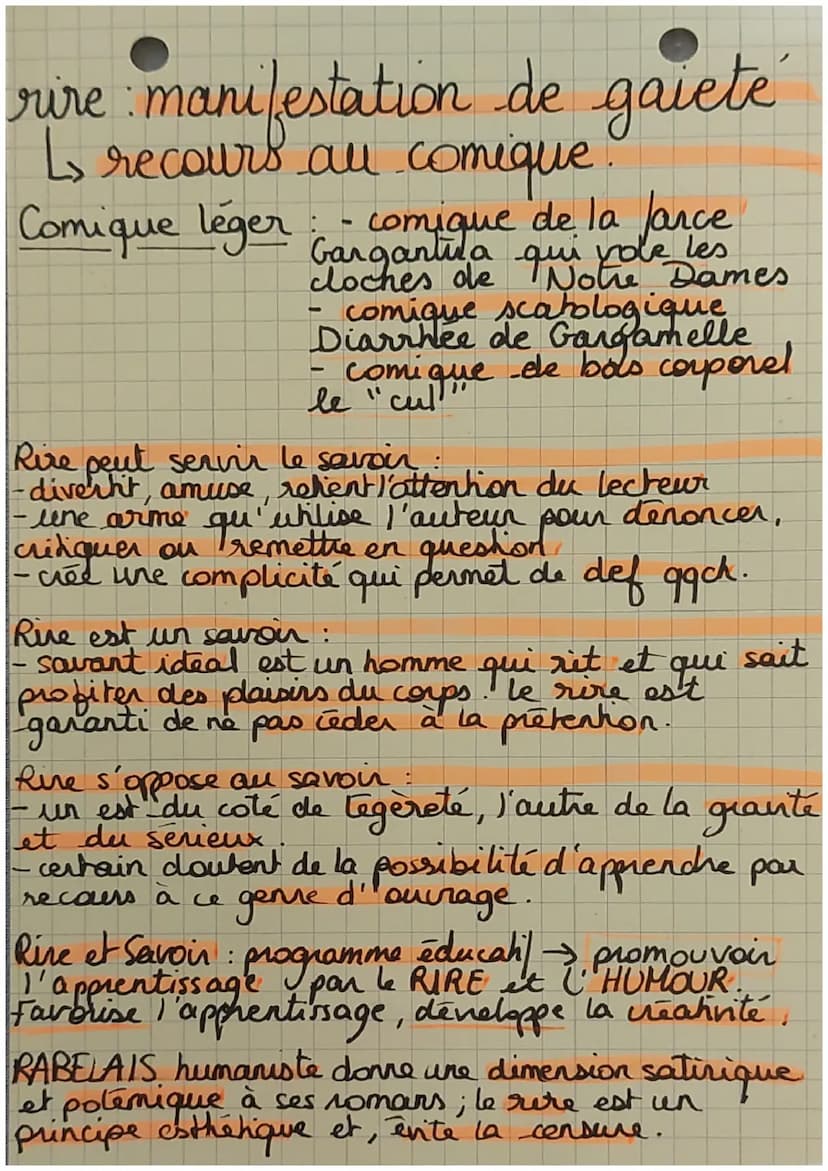 rire : manifestation de gaieté
↳ recours au comique.
Comique léger : - comique de la farce
Gargantua qui vole les
cloches de Notre Dames
- comique scatologique
Diarrhée de Gargamelle
- comique de bas corporel
le "cul"
Rire peut servir le savoir :
- divertit, amuse, retient l'attention du lecteur
- une arme qu'utilise l'auteur pour dénoncer,
critiquer ou remettre en question
- créé une complicité qui permet de def qqch.
Rire est un savoir :
- savant idéal est un homme qui rit et qui sait
profiter des plaisirs du corps. le rire est
garanti de ne pas céder à la prétention.
Rire s'oppose au savoir :
- un est du coté de légèreté, l'autre de la gravité
et du sérieux.
- certain doutent de la possibilité d'apprendre par
recours à ce genre d'ouvrage.
Rire et Savoir : programme éducatif → promouvoir
l'apprentissage par le RIRE et L'HUMOUR.
Favorise l'apprentissage, développe la créativité.
RABELAIS humaniste donne une dimension satirique
et polémique à ses romans ; le rire est un
principe esthétique et, évite la censure.